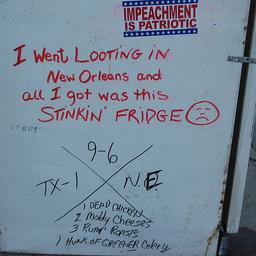 IMPEACHMENT
IS PATRIOTIC
I Went LOOTING in
New Orleans and
all I got was this
STINKIN' FRIDGE
9-6
TX-1
N.E
1 DEAD CHICKEN
2 Moldy Cheeses
3 Rump Roasts
1 HUNK OF GREENER Celery